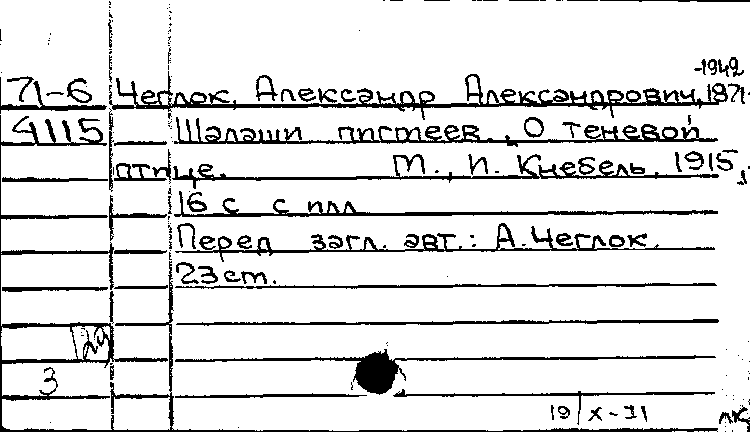 -1942
71-6 Чеглок, Александр Александрович, 1871-
4115 Шалаши листьев. О теневой
птице. М., И. Кнебель, 1915,
16 с с илл
Перед загл. авт.: А. Чеглок.
23 см.
129
3
19/X-71 лк